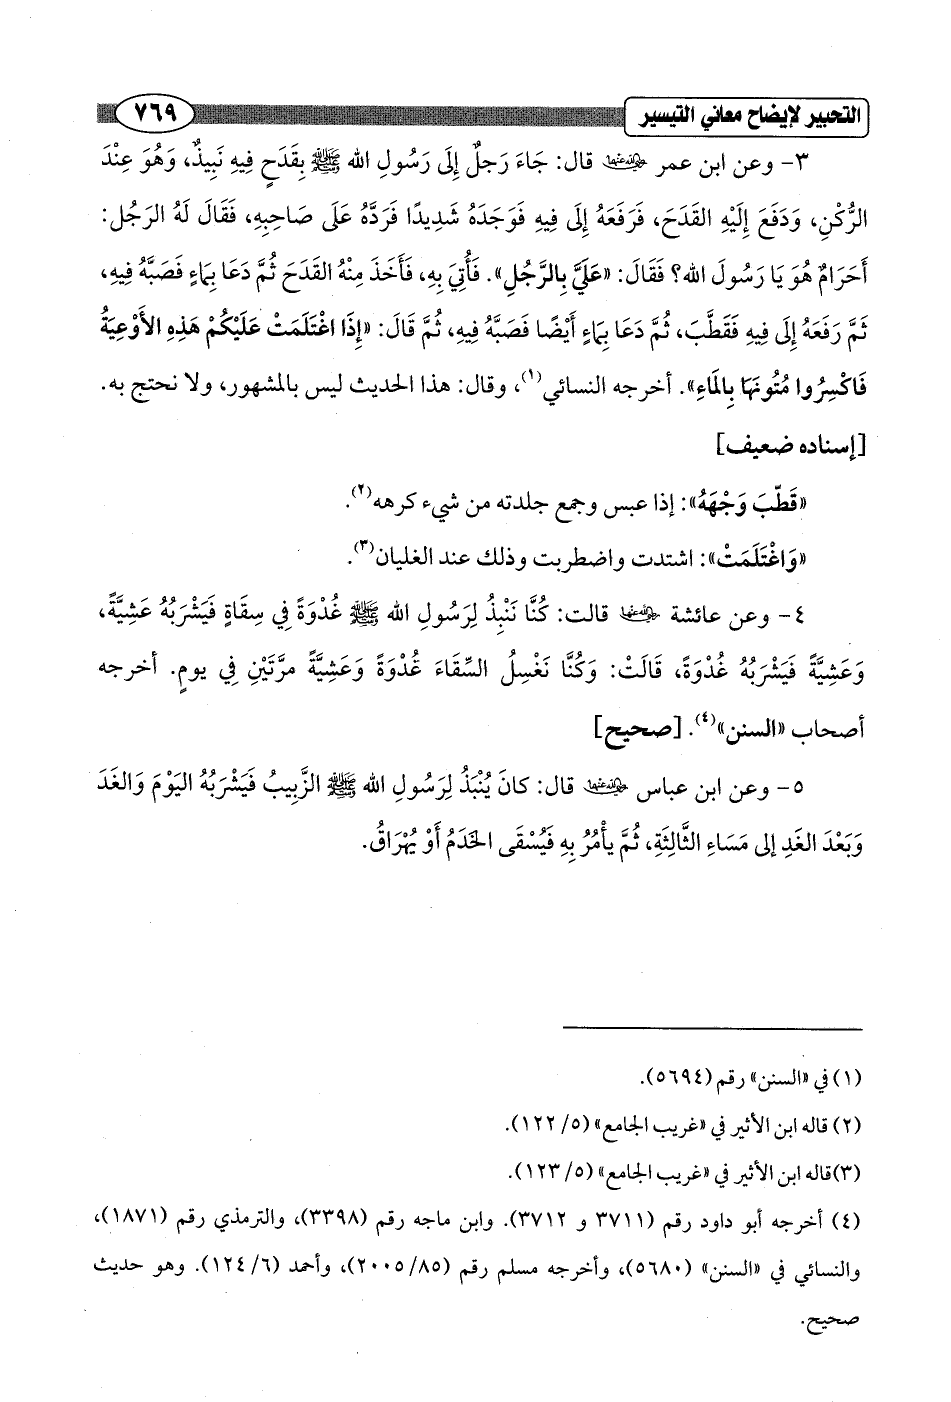 التحبير لإيضاح معاني التيسير ٧٦٩
٣- وعن ابن عمر رضي الله عنهما قال: جَاءَ رَجلٌ إِلَى رَسُولِ الله ﷺ بِقَدَحٍ فِيهِ نَبِيذٌ، وَهُوَ عِنْدَ
الرُّكْنِ، وَدَفَعَ إِلَيْهِ القَدَحَ، فَرَفَعَهُ إِلَى فِيهِ فَوَجَدَهُ شَدِيدًا فَرَدَّهُ عَلَى صَاحِبِهِ، فَقَالَ لَهُ الرَجُل:
أَحَرَامٌ هُوَ يَا رَسُولَ الله؟ فَقَالَ: «عَلَيَّ بِالرَّجُلِ». فَأُتِيَ بِهِ، فَأَخَذَ مِنْهُ القَدَحَ ثُمَّ دَعَا بِمَاءٍ فَصَبَّهُ فِيهِ،
ثَمَّ رَفَعَهُ إِلَى فِيهِ فَقَطَّبَ، ثُمَّ دَعَا بِمَاءٍ أَيْضًا فَصَبَّهُ فِيهِ، ثُمَّ قَالَ: «إِذَا اغْتَلَمَتْ عَلَيْكُمْ هَذِهِ الأَوْعِيَةُ
فَاكْسِرُوا مُتُونَهَا بِالمَاءِ». أخرجه النسائي(١)، وقال: هذا الحديث ليس بالمشهور، ولا نحتج به.
[إسناده ضعيف]
«قَطّبَ وَجْهَهُ»: إذا عبس وجمع جلدته من شيء كرهه(٢).
«وَاغْتَلَمَتْ»: اشتدت واضطربت وذلك عند الغليان(٣).
٤- وعن عائشة رضي الله عنها قالت: كُنَّا نَنْبِذُ لِرَسُولِ الله ﷺ غُدْوَةً فِي سِقَاةٍ فَيَشْرَبُهُ عَشِيَّةً،
وَعَشِيَّةً فَيَشْرَبُهُ غُدْوَةً، قَالَتْ: وَكُنَّا نَغْسِلُ السِّقَاءَ غُدْوَةً وَعَشِيَّةً مرَّتَيْنِ فِي يومٍ. أخرجه
أصحاب «السنن»(٤). [صحيح]
٥- وعن ابن عباس رضي الله عنهما قال: كانَ يُنْبَذُ لِرَسُولِ الله ﷺ الزَّبِيبُ فَيَشْرَبُهُ اليَوْمَ وَالغَدَ
وَبَعْدَ الغَدِ إلى مَسَاءِ الثَّالِثَةِ، ثُمَّ يأْمُرُ بِهِ فَيُسْقَى الخَدَمُ أَوْ يُهْرَاقُ.
(١) في «السنن» رقم (٥٦٩٤).
(٢) قاله ابن الأثير في «غريب الجامع» (٥/ ١٢٢).
(٣)قاله ابن الأثير في «غريب الجامع» (٥/ ١٢٣).
(٤) أخرجه أبو داود رقم (٣٧١١ و ٣٧١٢). وابن ماجه رقم (٣٣٩٨)، والترمذي رقم (١٨٧١)،
والنسائي في «السنن» (٥٦٨٠)، وأخرجه مسلم رقم (٢٠٠٥/٨٥)، وأحمد (٦/ ١٢٤). وهو حديث
صحيح.